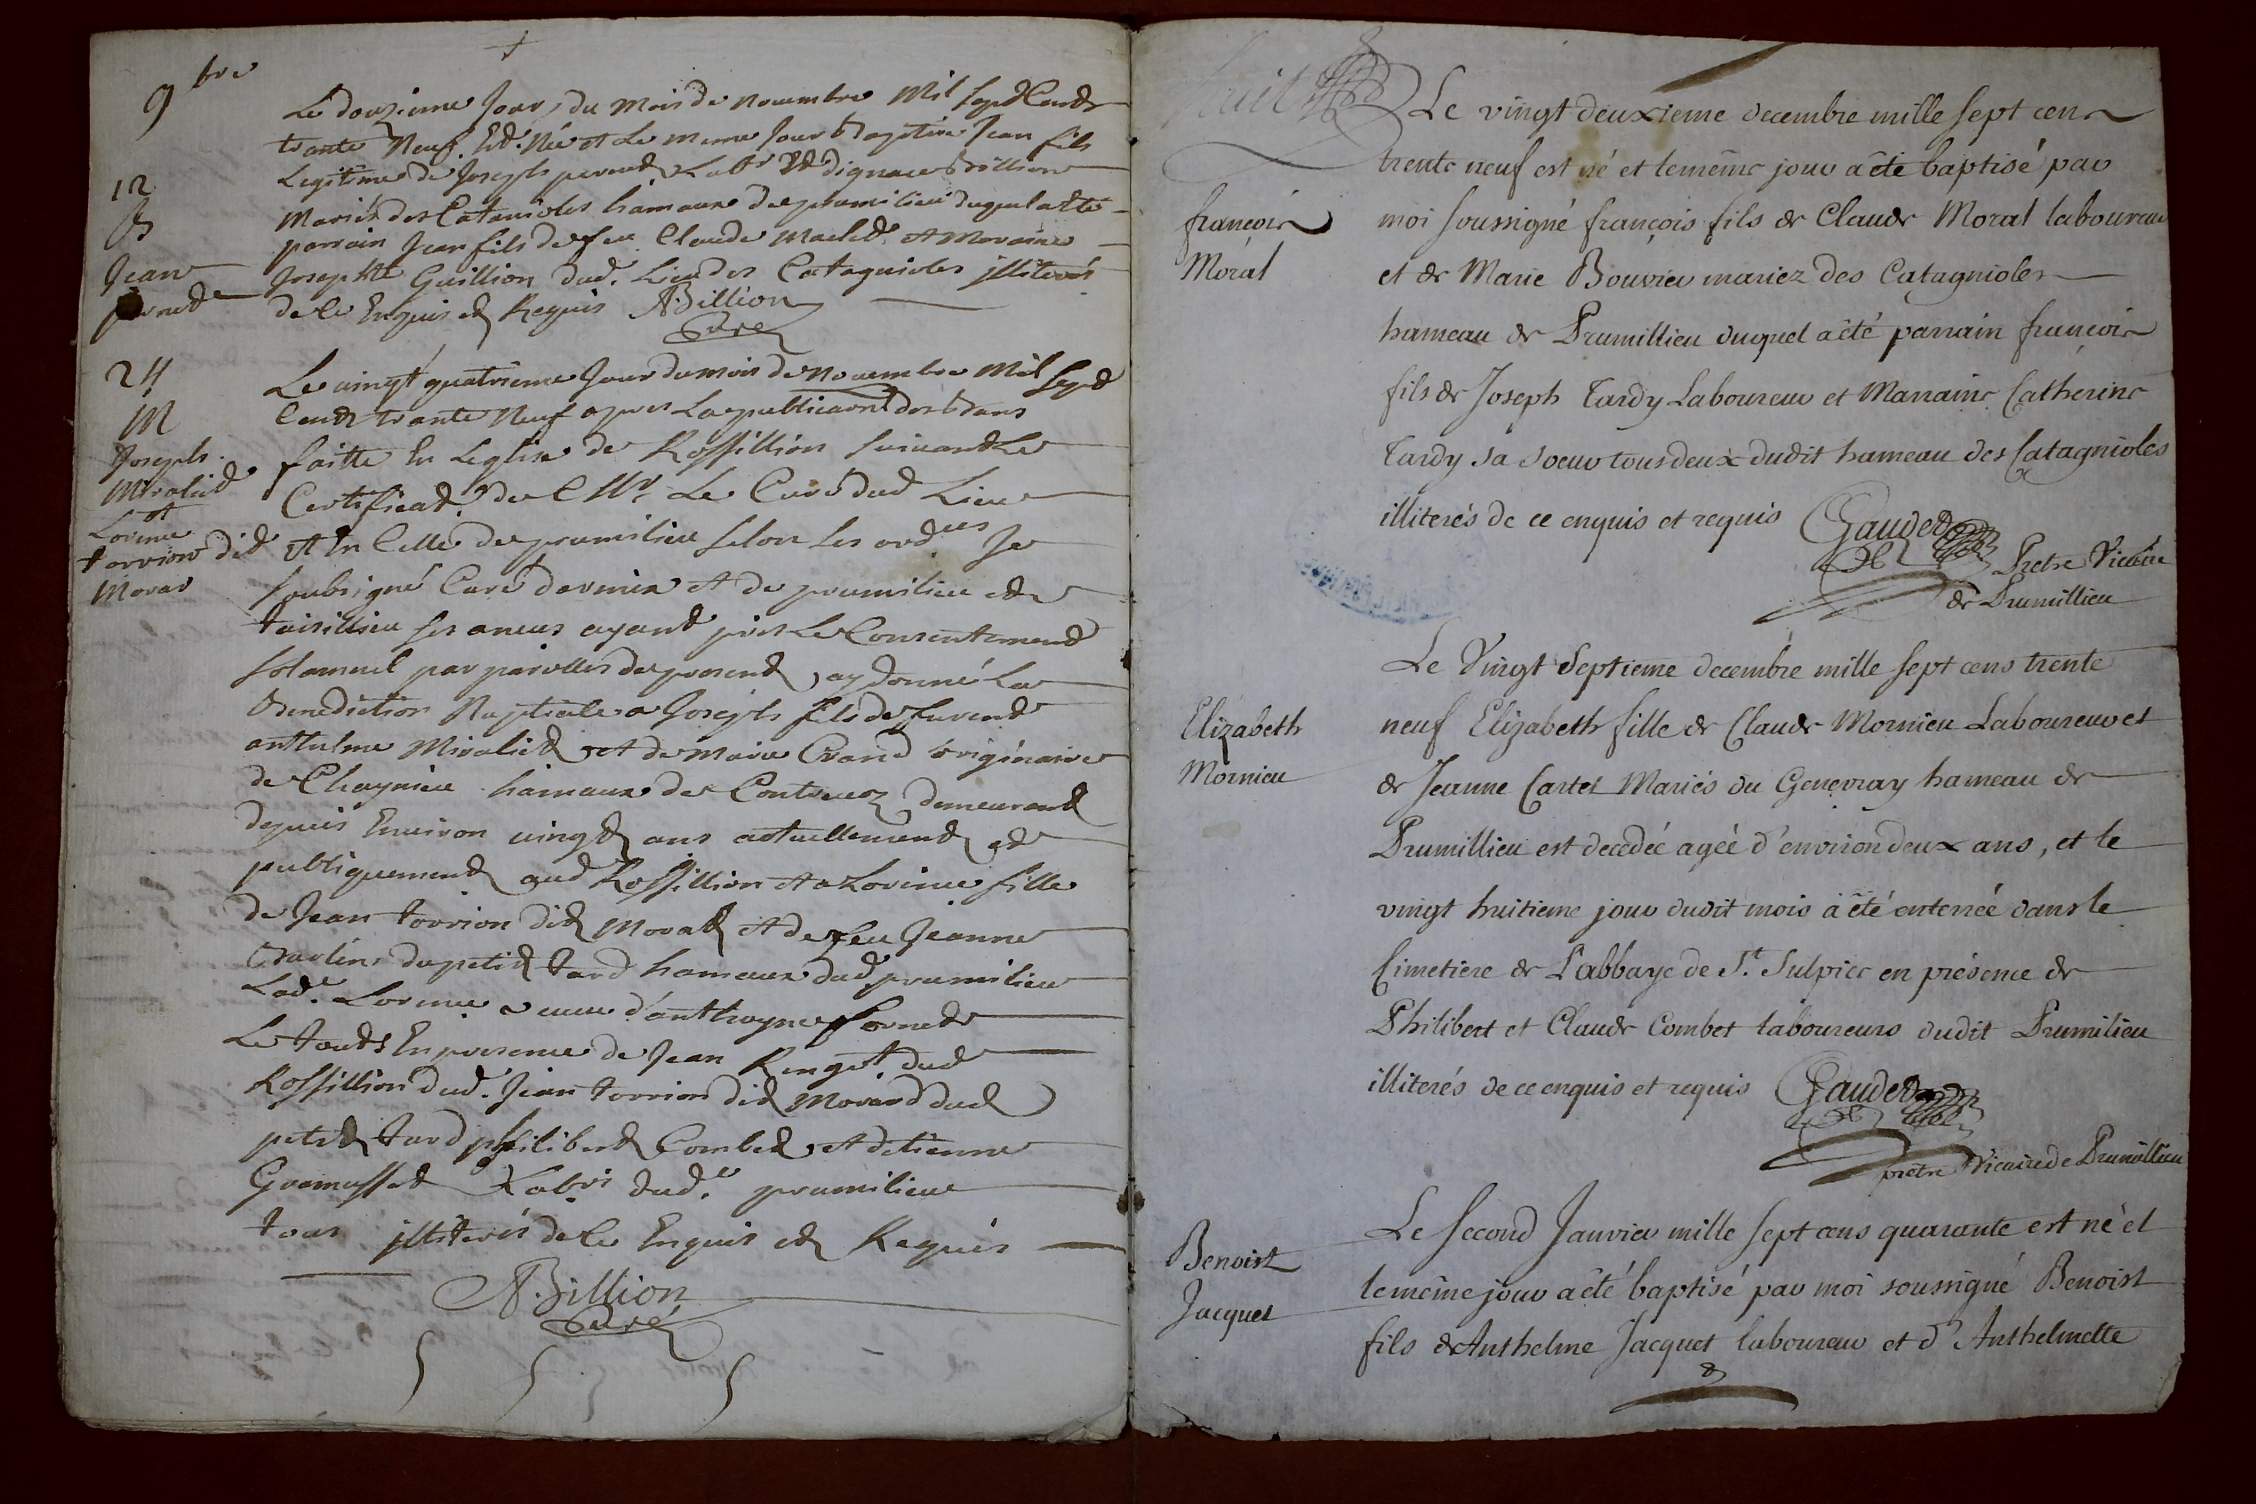 9bre
Le douzieme Jour du Mois de Nouembre Mil Sept Cents
trante Neuf Est Né et Le meme Jour Baptisé Jean fils
Legitime de Joseph pernet Labr et dignace Billion
Mariés des Catanioles hameaux de prumilieu duquel a Eté
parrain Jean fils de feu Claude Maclet et Maraine
Josephte Guillion dud. Lieu des Catagnioles jlliterés
de Ce Enquis et Requis ABillion
Curé
12
B
Jean
pernet
Le uingt quatrieme Jour du mois de Nouembre Mil Sept
Cents trante Neuf apres La publication des Bans
faitte En Leglise de Rossillion Suiuant Le
Certificat de Mr Le Curé dud Lieu
et En Celle de prumilieu Selon Les ordces Je
Soubsigné Curé darmix et de prumilieu et
ses anexs ayant pris Le Consentement
Solamnel par parolles de present ay donné La
Benediction Nuptiale a Joseph fils de
anthelme Miraliet et de Marie originaire
de hameaux de Contreuoz demeurant
depuis Enuiron uingt ans actuellement et
publiquement aud Rossillion et a Lorince fille
de Jean torrion dit Morat et de feu Jeanne
du petit tard hameaux dud prumilieu
Lade. Lorince ueuue d'anthoyne
Le touts En presence de Jean dud
Rossillion dud. Jean torrion dit Morard dud
petit tard philibert Combet et detienne
Gramusset Labrs dude. prumilieu
tous jlliterés de Ce Enquis et Requis
ABillion
Curé
24
M
Joseph
Miraliet
et
Lorince
torrion dit
Morat
huit
Le vingt deuxieme decembre mille sept cens
trente neuf est né et le même jour a été baptisé par
moi soussigné françois fils de Claude Moral laboureur
et de Marie Bouvier mariez des Catagnioles
hameau de Prumillieu duquel a été parrain françois
fils de Joseph Tardy Laboureur et Marraine Catherine
Tardy sa soeur tous deux dudit hameau des Catagnioles
illiterés de ce enquis et requis Gaudet
Pretre Vicaire
de Prumillieu
françois
Moral
Le Vingt Septieme decembre mille sept cens trente
neuf Elizabeth fille de Claude Mornieu Laboureur et
de Jeanne Cartet Mariés du Genevray hameau de
Prumillieu est decedée agée d'environ deux ans, et le
vingt huitieme jour dudit mois a été enterrée dans le
Cimetiere de L'abbaye de St. Sulpice en présence de
Philibert et Claude Combet laboureurs dudit Prumilieu
illiterés de ce enquis et requis Gaudet
prêtre Vicaire de Prumillieu
Elizabeth
Mornieu
Le Second Janvier mille sept cens quarante est né et
le même jour a été baptisé par moi soussigné Benoist
fils de Anthelme Jacquet laboureur et d'Anthelmette
Benoist
Jacquet